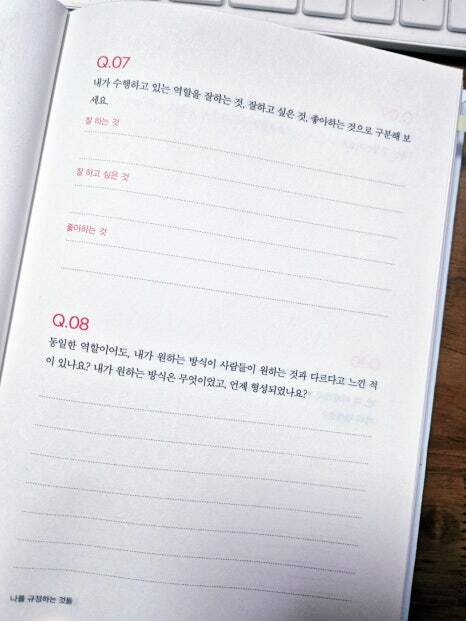 Q.07
내가 수행하고 있는 역할을 잘하는 것, 잘하고 싶은 것, 좋아하는 것으로 구분해 보
세요.
잘 하는 것
잘 하고 싶은 것
좋아하는 것
Q.08
동일한 역할이어도, 내가 원하는 방식이 사람들이 원하는 것과 다르다고 느낀 적
이 있나요? 내가 원하는 방식은 무엇이었고, 언제 형성되었나요?
나를 규정하는 것들